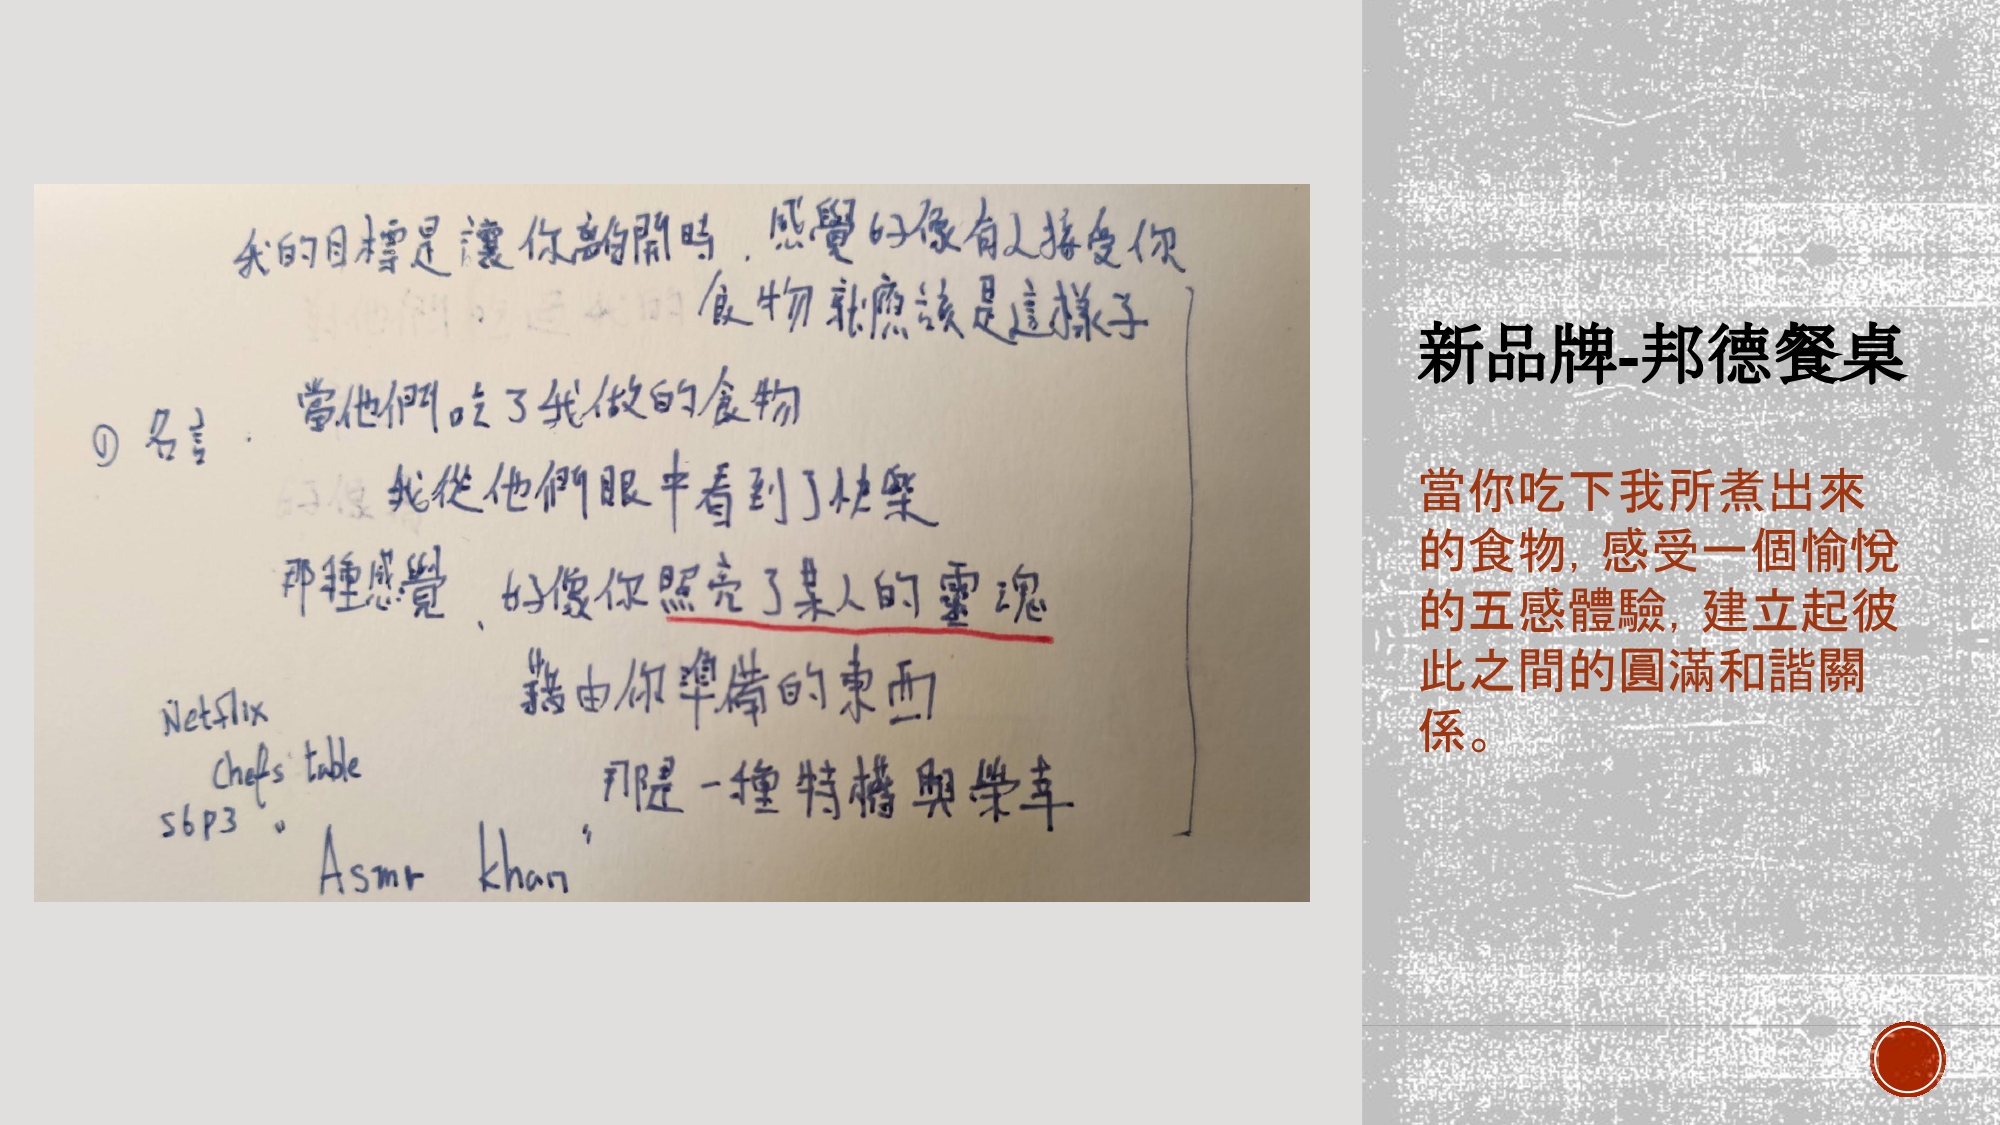 我的目標是讓你離開時.感覺好像有人接受你
食物就應該是這樣子
① 名言.
當他們吃了我做的食物
我從他們眼中看到了快樂
那種感覺、好像你照亮了某人的靈魂
藉由你準備的東西
那是一種特權與榮幸
Netflix
Chefs table
S6P3
"Asmr khan"
新品牌-邦德餐桌
當你吃下我所煮出來
的食物, 感受一個愉悅
的五感體驗, 建立起彼
此之間的圓滿和諧關
係。